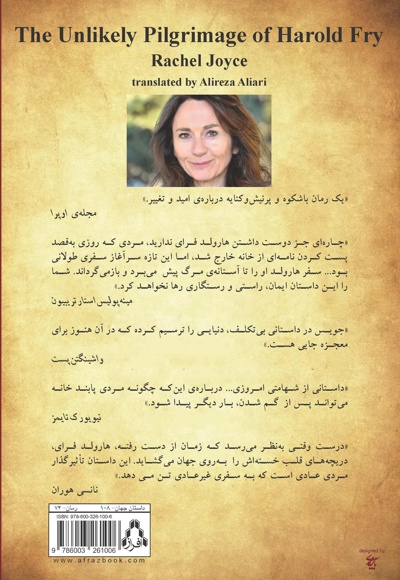 The Unlikely Pilgrimage of Harold Fry
Rachel Joyce
translated by Alireza Aliari
«یک رمان باشکوه و پرنیش‌وکنایه درباره‌ی امید و تغییر.»
مجله‌ی اوپرا
«چاره‌ای جز دوست داشتن هارولد فرای ندارید، مردی که روزی به‌قصد
پست کردن نامه‌ای از خانه خارج شد، اما این تازه سرآغاز سفری طولانی
بود... سفر هارولد او را تا آستانه‌ی مرگ پیش می‌برد و بازمی‌گرداند. شما
را این داستان ایمان، راستی و رستگاری رها نخواهد کرد.»
مینه‌پولیس استار تریبیون
«جویس در داستانی بی‌تکلف، دنیایی را ترسیم کرده که در آن هنوز برای
معجزه جایی هست.»
واشینگتن‌پست
«داستانی از شهامتی امروزی... درباره‌ی این‌که چگونه مردی پابند خانه
می‌تواند پس از گم شدن، بار دیگر پیدا شود.»
نیویورک تایمز
«درست وقتی به‌نظر می‌رسد که زمان از دست رفته، هارولد فرای،
دریچه‌های قلب خسته‌اش را به‌روی جهان می‌گشاید. این داستان تأثیرگذار
مردی عادی است که به سفری غیرعادی تن می دهد.»
نانسی هوران
داستان جهان- ۱۰۸ رمان- ۷۴
ISBN: 978-600-326-100-6
9 786003 261006
افراز
www.afrazbook.com
designed by